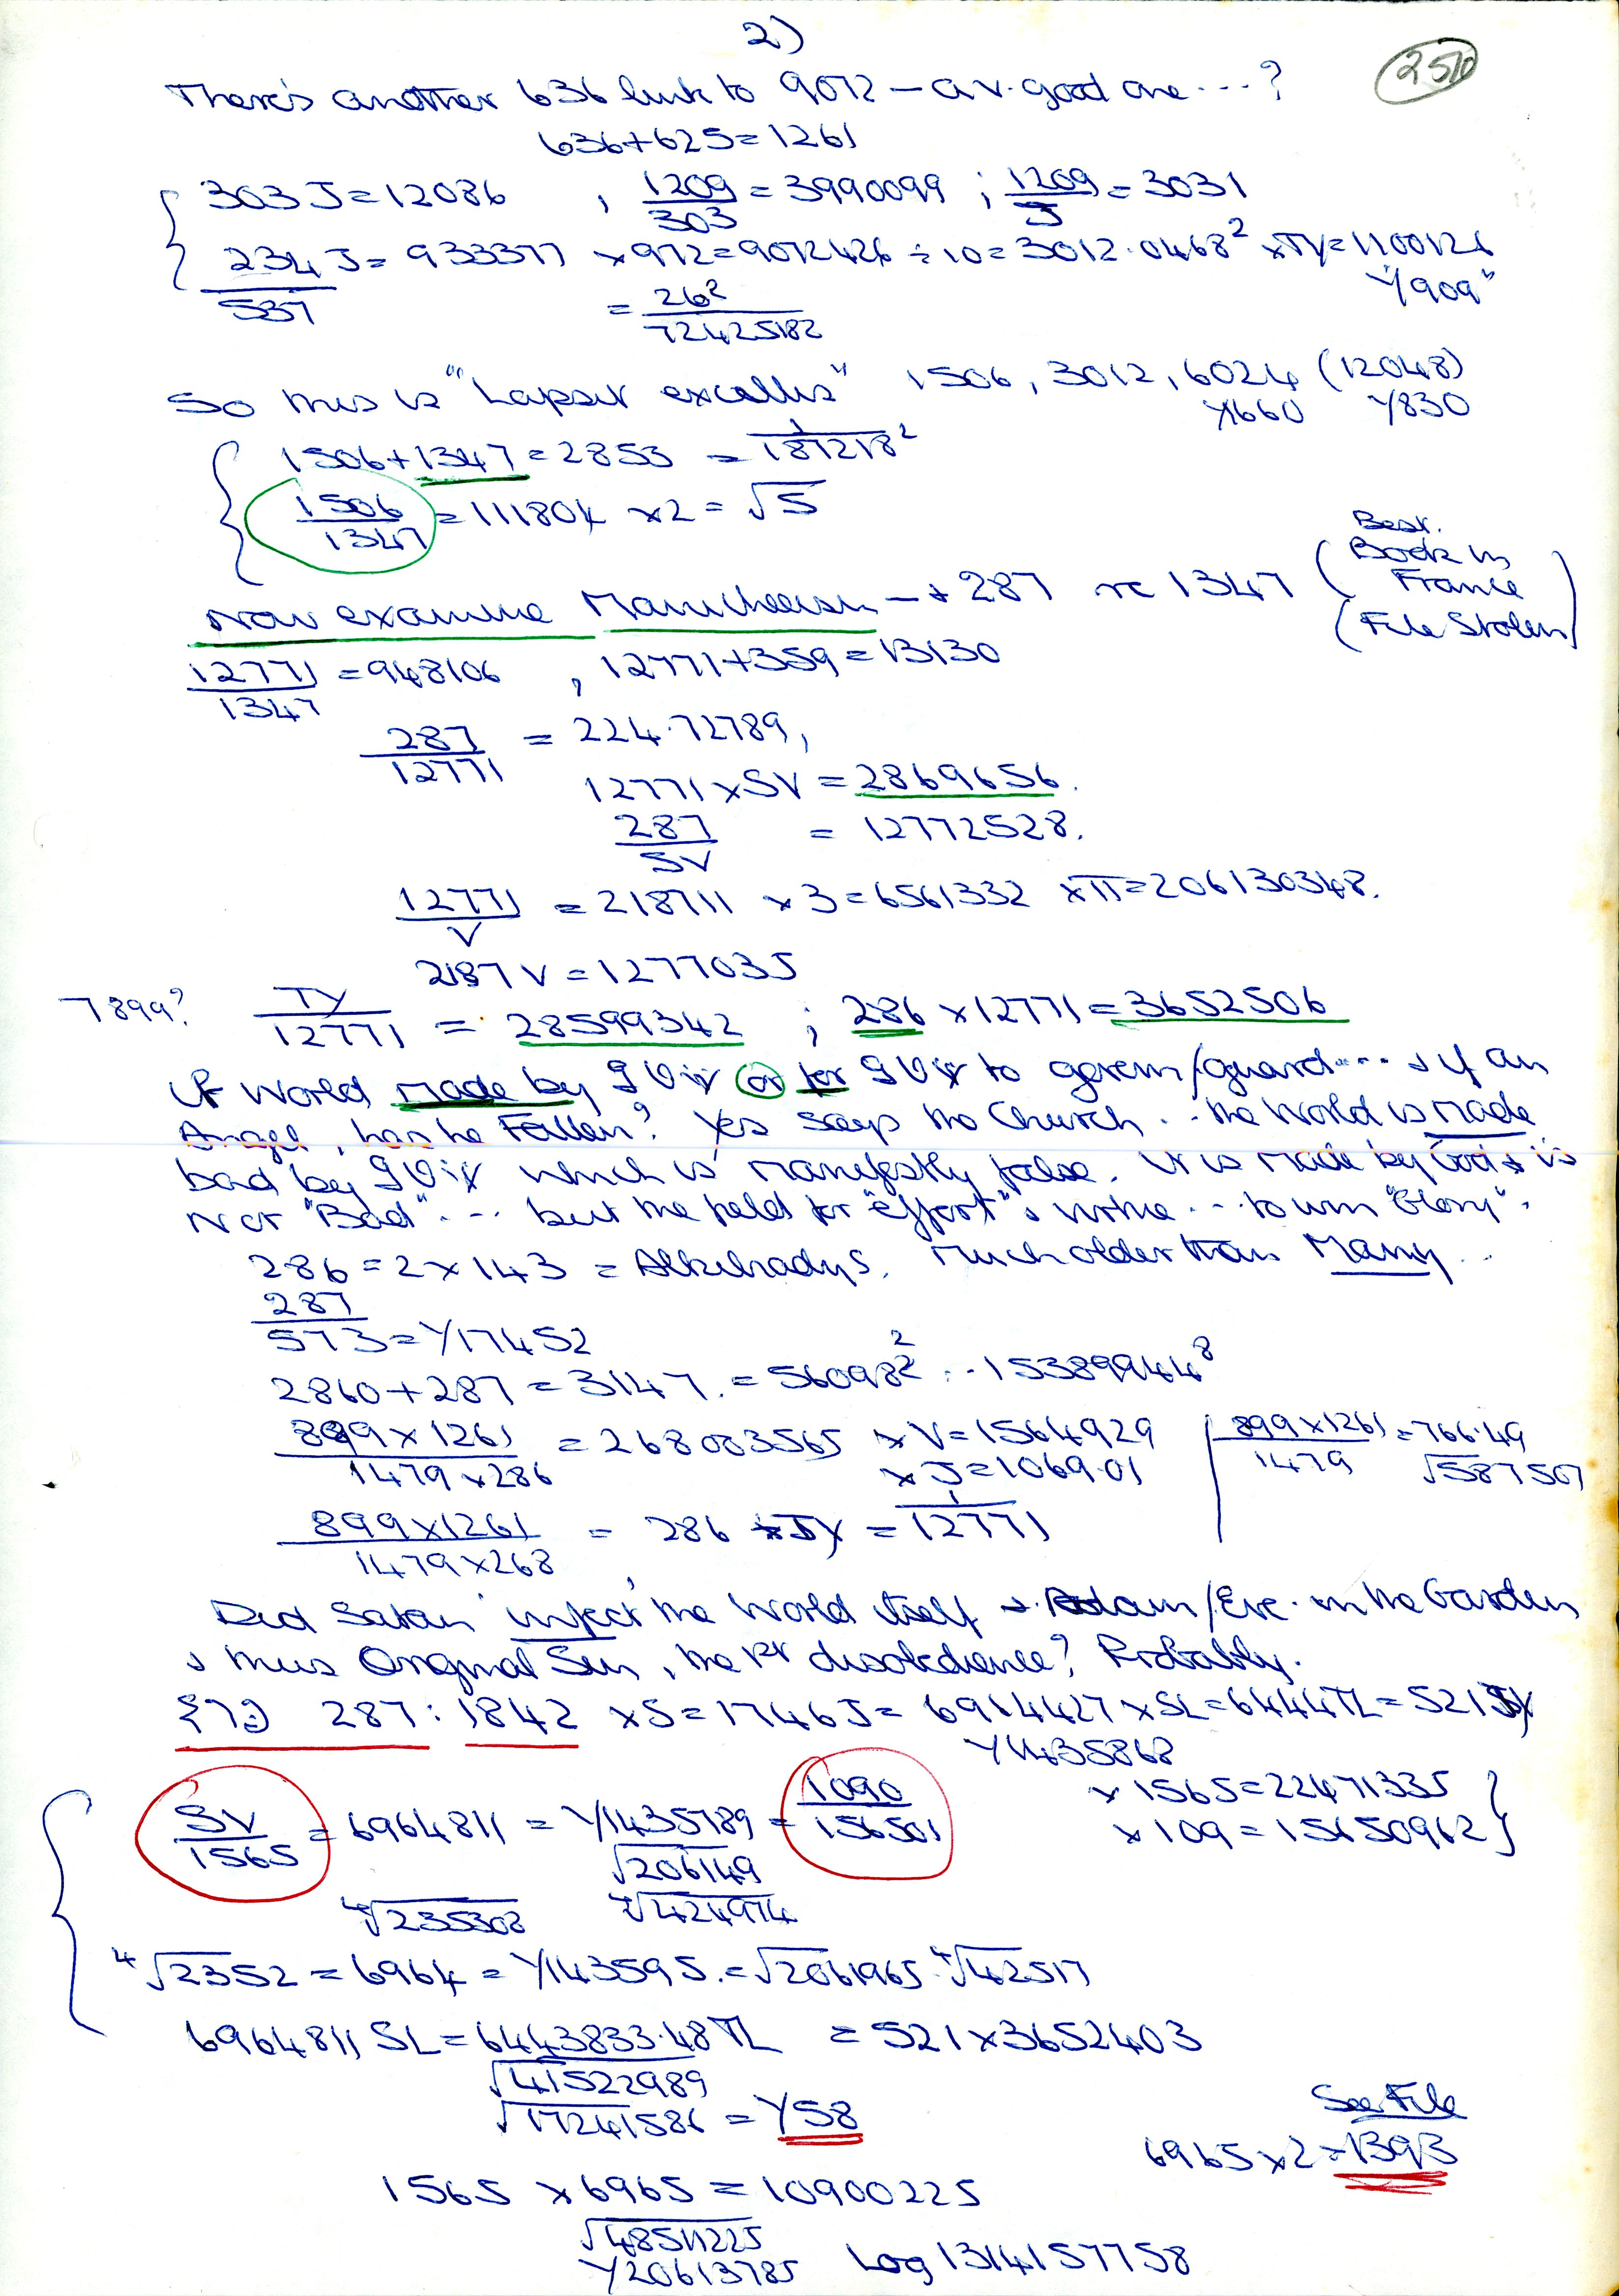 2)
2510
There's another 636 link to 9072 - a v. good one ...?
636+625=1261
303J=12086 , 1209/303 = 3990099 ; 1209/J = 3031
234J/537 = 933377 x972=9072426 ÷10=3012.0468² xTY=1100126
Y"909"
= 26²/72425182
So this is "Lapsit excellis" 1506, 3012, 6024 (12048)
Y1660 Y830
1506+1347=2853 = 1/187218²
1506/1347 = 111804 x2=√5
Now examine Manicheeism - + 287 re 1347 (Best. Book in France
(File Stolen)
12771/1347 = 948106 , 12771+359=13130
287/12771 = 224.72789,
12771xSV=2869656.
287/SV = 12772528.
12771/V = 218711 x3=6561332 xπ=206130348.
2187V=1277035
7899? TY/12771 = 28599342 ; 286x12771=3652506
If World made by or for to govern/guard... & if an
Angel, has he Fallen? Yes says the Church ∴ the World is made
bad by which is manifestly false. It is made by God & is
Not "Bad"... but the field for "effort" & virtue ... to win "Glory".
286=2x143= Much older than Many..
287/573=Y17452
2860+287=3147.=56098² .. 15389944⁸
899x1261/1479x286 = 268003565 xV=1564929
xJ=1069.01
899x1261/1479=766.49
√587507
899x1261/1479x268 = 286 xJY = 1/12771
Did Satan infect the World itself & Adam/Eve in the Garden
& thus Original Sin, the 1st disobedience? Probably.
287:1842 xS=1746J=6914427xSL=6444TL=521JY
Y1435868
x1565=22471335
x109=15650962
SV/1565 = 6964811 = Y1435789 = 1090/156501
√206149
⁴√235308 ⁴√424974
⁴√2352=6964=Y143595.=√2061965 ⁴√42517
6964811SL=6443833.48TL =521x3652403
√41522989
√17241586 = Y58
See File
6965x2=1393
1565x6965=10900225
√48511225
Y20613785 Log 1314157758